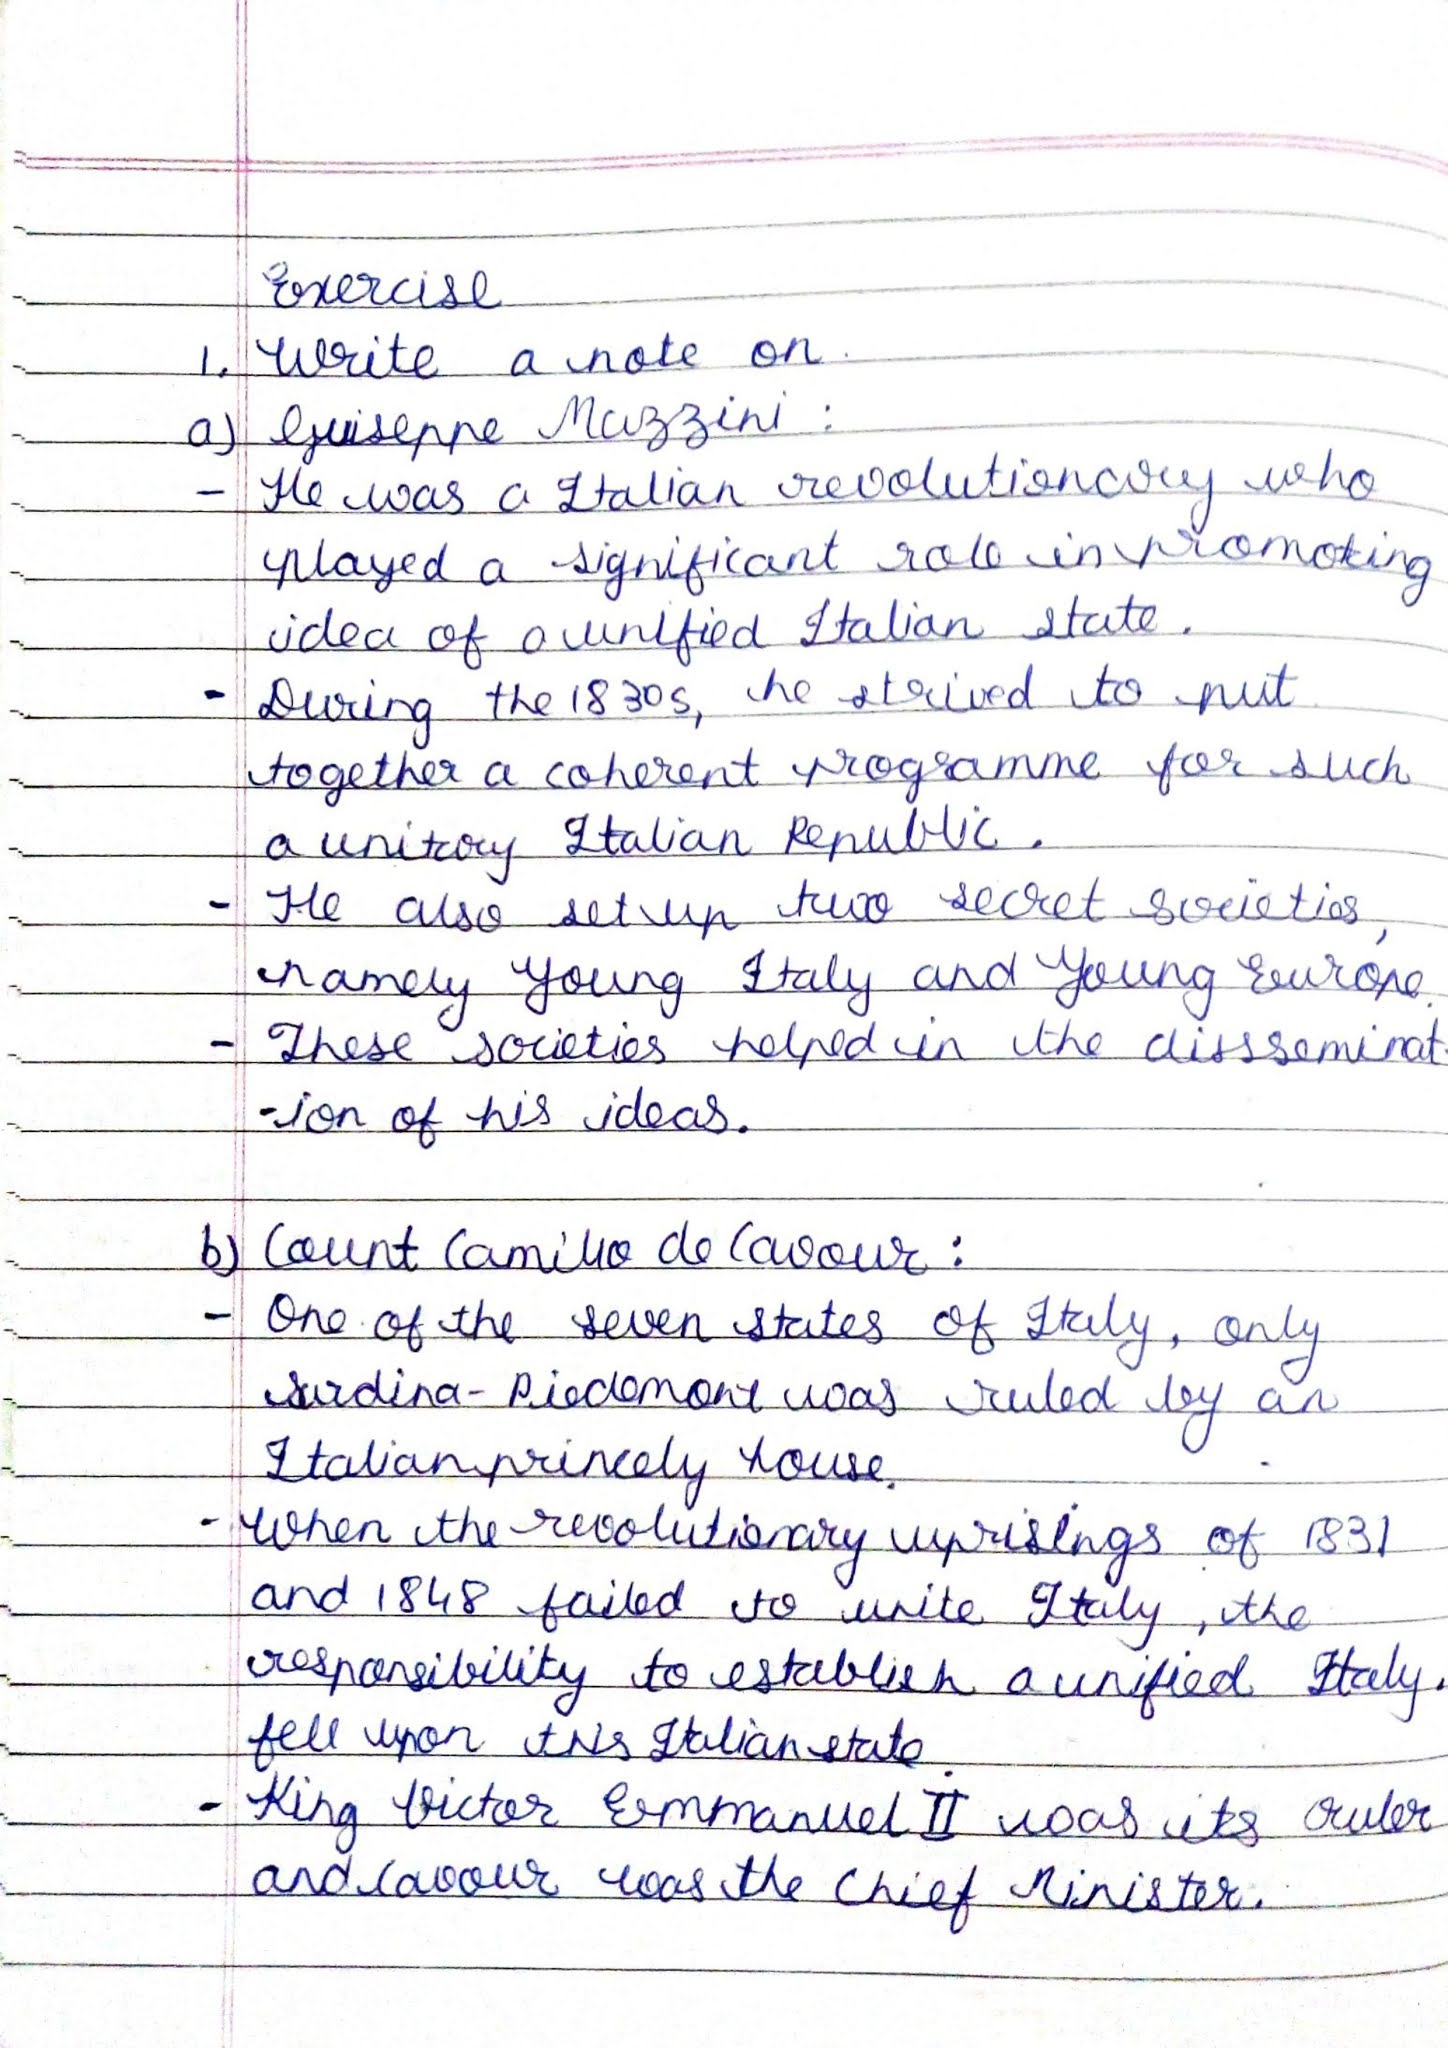 Exercise
1. Write a note on.
a) Guiseppe Mazzini :
- He was a Italian revolutionary who
played a significant role in promoting
idea of a unified Italian state.
- During the 1830s, he strived to put
together a coherent programme for such
a unitary Italian Republic.
- He also set up two secret societies,
namely Young Italy and Young Europe.
- These societies helped in the dissseminat-
-ion of his ideas.
b) Count Camillo de Cavour :
- One of the seven states of Italy, only
Sardina-Piedemont was ruled by an
Italian princely house.
- When the revolutionary uprisings of 1831
and 1848 failed to unite Italy, the
responsibility to establish a unified Italy.
fell upon this Italian state.
- King Victor Emmanuel II was its ruler
and Cavour was the Chief Minister.